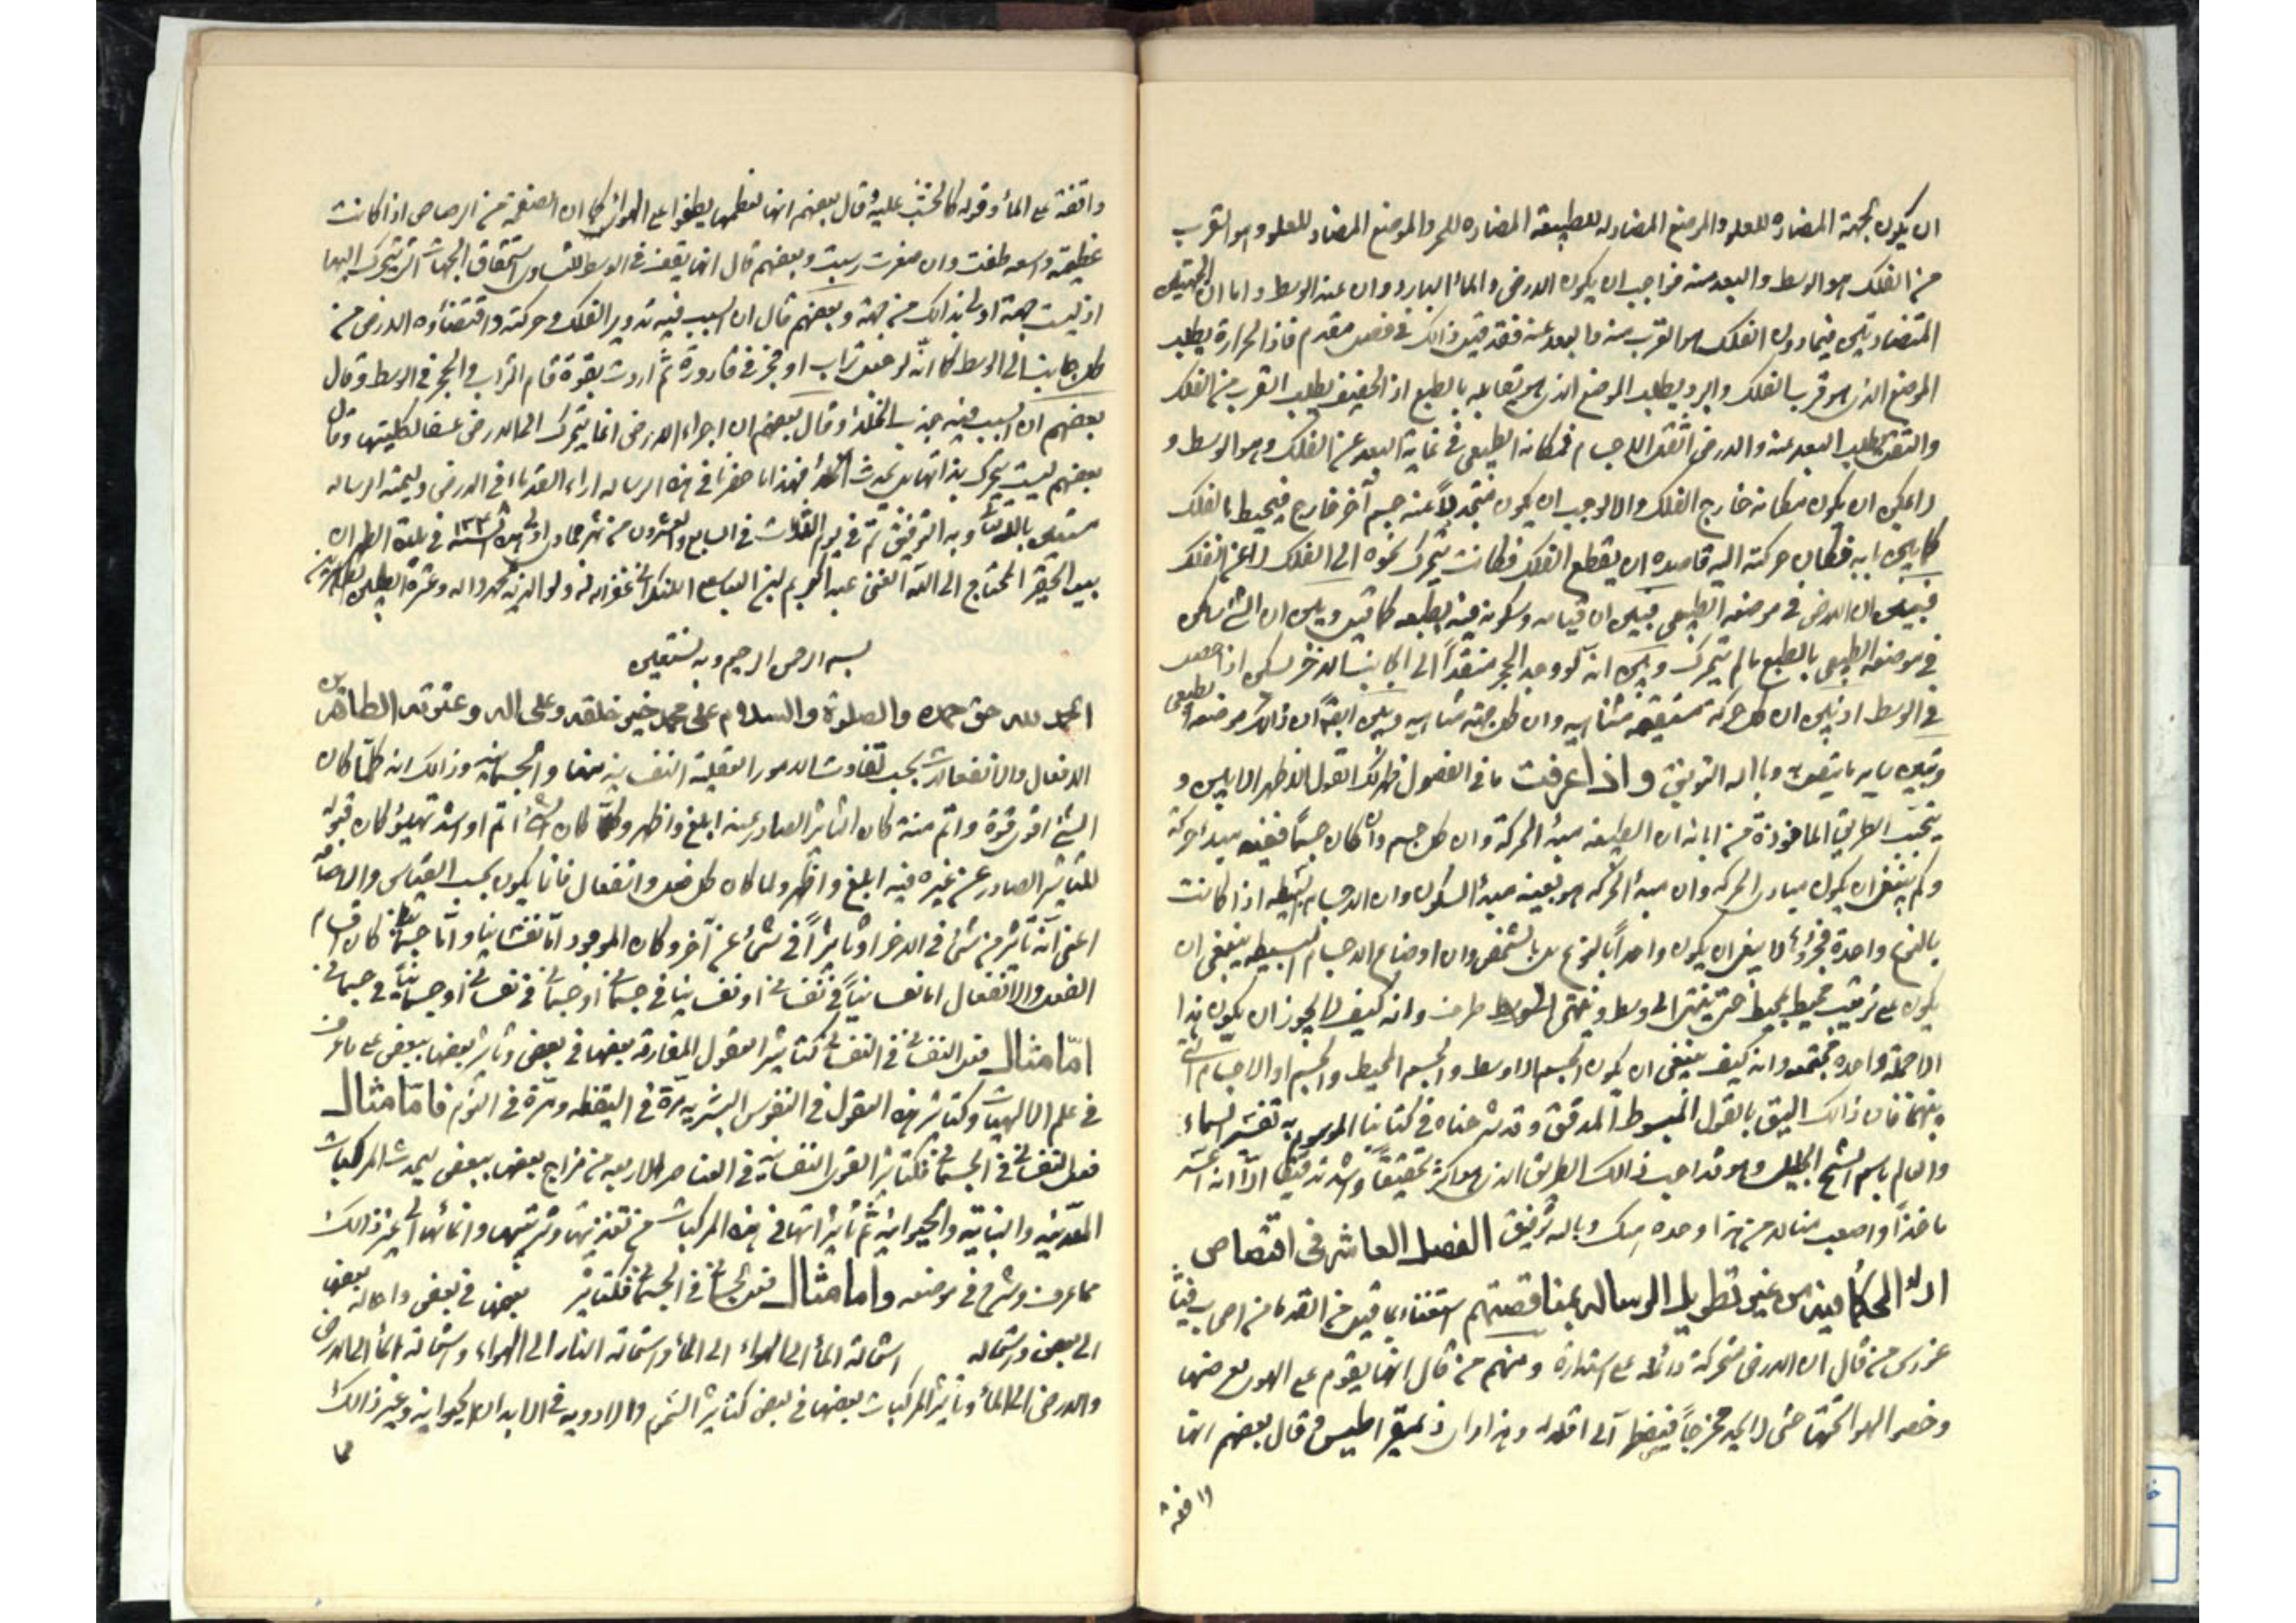 ان يكون الجهة المضاده للعلو والموضع المضاد له للطبيعة المضاده للحر والموضع المضاد للعلو وهو القرب
من الفلك هو الوسط والبعد منه فواجب ان يكون الارض والماء الباردان عند الوسط واما ان الجهتين
المتضادتين فيما دون الفلك هو القرب منه والبعد عنه فقد تبين ذلك في فصل مقدم فاذا الحرارة يطلب
الموضع الذي هو قرب الفلك والبرد يطلب الموضع الذي هو يقابله بالطبع اذ الخفيف يطلب القرب من الفلك
والثقيل يطلب البعد عنه والارض اثقل الاجسام فمكانه الطبيعي في غاية البعد عن الفلك وهو الوسط و
لا يمكن ان يكون مكانه خارج الفلك والا لوجب ان يكون جسم آخر خارج فيحيط بالفلك
حركته اليه قاصده ان يقطع الفلك فكانت تتحرك نحوه الى الفلك لا عن الفلك
فبين ان الارض في موضعه الطبيعي فبين ان قيامه وسكونه فيه بطبعه كما تبين وبين ان الشيء
في موضعه الطبيعي بالطبع ما لم يتحرك وبين انه لو وجد الحجر منفذا الى الجانب الاخر لسكن اذا حصل
في الوسط اذ بين ان كل حركة مستقيمة متناهيه وان كل جهة متناهيه وبين ايضا ان ذلك موضعه الطبيعي
وتبين وبالله التوفيق واذا عرفت ما في الفصول ظهر لك القول الاظهر الابين و
يتجنب الطريق الماخوذة من ابانة ان الطبيعة مبدأ الحركة وان كل جسم وان كان جسما ففيه مبدأ حركة
وكم ينبغي ان يكون مبادى الحركه وان مبدأ الحركه هو بعينه مبدأ السكون وان الاجسام البسيطه اذا كانت
بالنوع واحدة لا ينبغى ان يكون واحدا بالنوع بل بالشخص وان اوضاع الاجسام البسيطه ينبغى ان
يكون على ترتيب محيط بمحيط حتى ينتهى الى وسط طرف وانه كيف لا يجوز ان يكون هذا
الا جملة واحدة مجتمعه وانه كيف ينبغى ان يكون الجسم الاوسط والجسم المحيط والجسم او الاجسام التى
بينهما فان ذلك اليق بالقول المبسوط المدقق وقد شرحناه في كتابنا الموسوم به تفسير السماء
والعالم باسم الشيخ الجليل وهو قد احب ذلك الطريق الذى هو اكثر تحقيقا واشد تدقيقا الا انه اعسر
ماخذا واصعب منالا من هذا وحده سلك وبالله توفيق الفصل العاشر فى اقتصاص
اراء الحكماء فيه من غير تطويل الرساله بمناقضتهم استغناء بما قيل من القدماء من اصحاب فيثا
غورس من قال ان الارض متحركة دائما على استدارة ومنهم من قال انها يقوم على الهوى مع ضمها
وحصر الهواء تحتها حتى لا يجد مخرجا فيضطر الى اقلاله وهذا راى ذيمقراطيس وقال بعضهم انها
واقفة
واقفة على الماء وقوله كالخشب عليه وقال بعضهم انها لعظمها يطفوا على الهواء كما ان الصفيحة من الرصاص اذا كانت
عظيمة واسعه طفت وان صغرت رسبت وبعضهم قال انها يقف فى الوسط لتساوى استحقاق الجهات التى يتحرك اليها
اذ ليست جهة اولى بذلك من جهة وبعضهم قال ان السبب فيه تدوير الفلك وحركته واقتضاؤه الارض من
كل جانب الى الوسط كما انه لو جعل تراب او حجر فى قارورة ثم اديرت بقوة قام التراب والحجر فى الوسط وقال
بعضهم ان السبب فيه جذب الخلاء وقال بعضهم ان اجزاء الارض انما يتحرك الى الارض عشقا لكليتها وقال
بعضهم ليست يتحرك بذاتها بل فهذا ما حضرنا فى هذه الرسالة اراء القدماء فى الارض وليختم الرساله
مستعين بالله وبه التوفيق تم فى يوم الثلاث فى السابع والعشرون من شهر جمادى الاولى فى بلدة الطهران
بيد الحقير المحتاج الى الله الغنى عبد الكريم ابن العباس اللنكرانى غفر الله له ولوالديه بمحمد واله وعترته الطيبين
بسم الله الرحمن الرحيم وبه نستعين
الحمد لله حق حمده والصلوة والسلام على محمد خير خلقه وعلى اله وعترته الطاهرين
الافعال والانفعالات بحسب تفاوت الامور العقلية النفسانية منها والجسمانية وذلك انه كلما كان
الشئ اقوى قوة واتم منة كان التاثير الصادر عنه ابلغ واظهر وكلما كان الشئ اتم او اشد تهيؤا كان قبوله
للتاثير الصادر عن غيره فيه ابلغ واظهر ولما كان كل فعل وانفعال فانما يكون بحسب القياس والاضافة
اعنى انه تاثير من شئ فى الاخر او تاثيرا فى شئ عن آخر وكان الموجود اما نفسانيا واما جسمانيا كان اقسام
الفعل والانفعال اما نفسانيا فى نفسانى او نفسانيا فى جسمانى او جسمانى فى نفسانى او جسمانيا فى جسمانى
اما مثال فعل النفسانى فى النفسانى كتاثير العقول المفارقه بعضها فى بعض وتاثير بعضها ببعض على ما عرف
فى علم الالهيات وكتاثير هذه العقول فى النفوس البشريه مرة فى اليقظه ومرة فى النوم فاما مثال
فعل النفسانى فى الجسمانى فكتاثير القوى النفسانية فى العناصر الاربعه من مزاج بعضها ببعض ليحدث المركبات
المعدنية والنباتية والحيوانية ثم تاثيراتها فى هذه المركبات من تغذيتها وتربيتها وانمائها الى غير ذلك
مما عرف وشرح فى موضعه واما مثال فعل الجسمانى فى الجسمانى فكتاثير بعضها فى بعض واحاله بعضها
الى بعض واستحاله استحالة الماء الى الهواء الى الماء واستحالة النار الى الهواء واستحالة الماء الى الارض
والارض الى الماء وتاثير المركبات بعضها فى بعض كتاثير السموم والادويه فى الابدان الحيوانيه وغير ذلك
مما